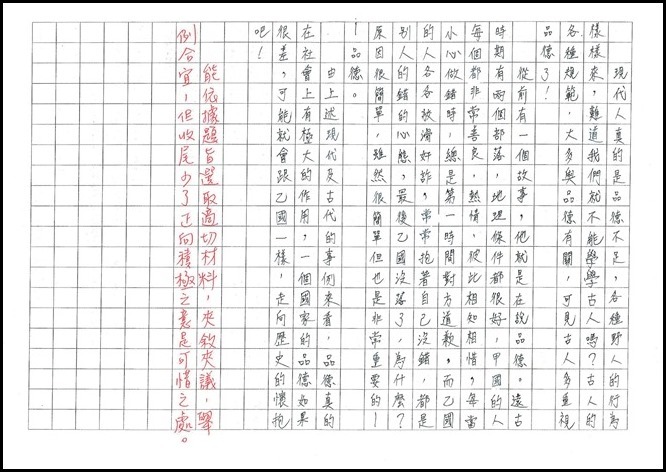 現代人真的是品德不足，各種野人的行為
樣樣來，難道我們就不能學學古人嗎？古人的
各種規範，大多與品德有關，可見古人多重視
品德了！
從前有一個故事，他就是在說品德。遠古
時期有兩個部落，地理條件都很好，甲國的人
每個都非常善良、熱情，彼此相知相惜，每當
小心做錯時，總是第一時間對方道歉，而乙國
的人各各放滑奸詐，常常抱著自己沒錯，都是
別人的錯的心態，最後乙國沒落了，為什麼？
原因很簡單，雖然很簡單但也是非常重要的—
—品德。
由上述現代及古代的事例來看，品德真的
在社會上有極大的作用，一個國家的品德如果
很差，可能就會跟乙國一樣，走向歷史的懷抱
吧！
能依據題旨選取適切材料，夾敘夾議，舉
例合宜，但收尾少了正向積極之意是可惜之處。